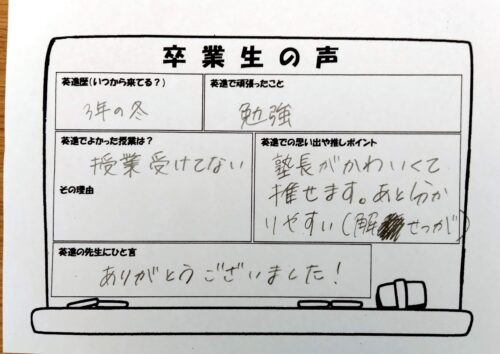 卒業生の声
英進歴(いつから来てる?)
3年の冬
英進で頑張ったこと
勉強
英進でよかった授業は?
授業受けてない
その理由
英進での思い出や推しポイント
塾長がかわいくて
推せます。あと分か
りやすい(解せつが)
英進の先生にひと言
ありがとうございました!